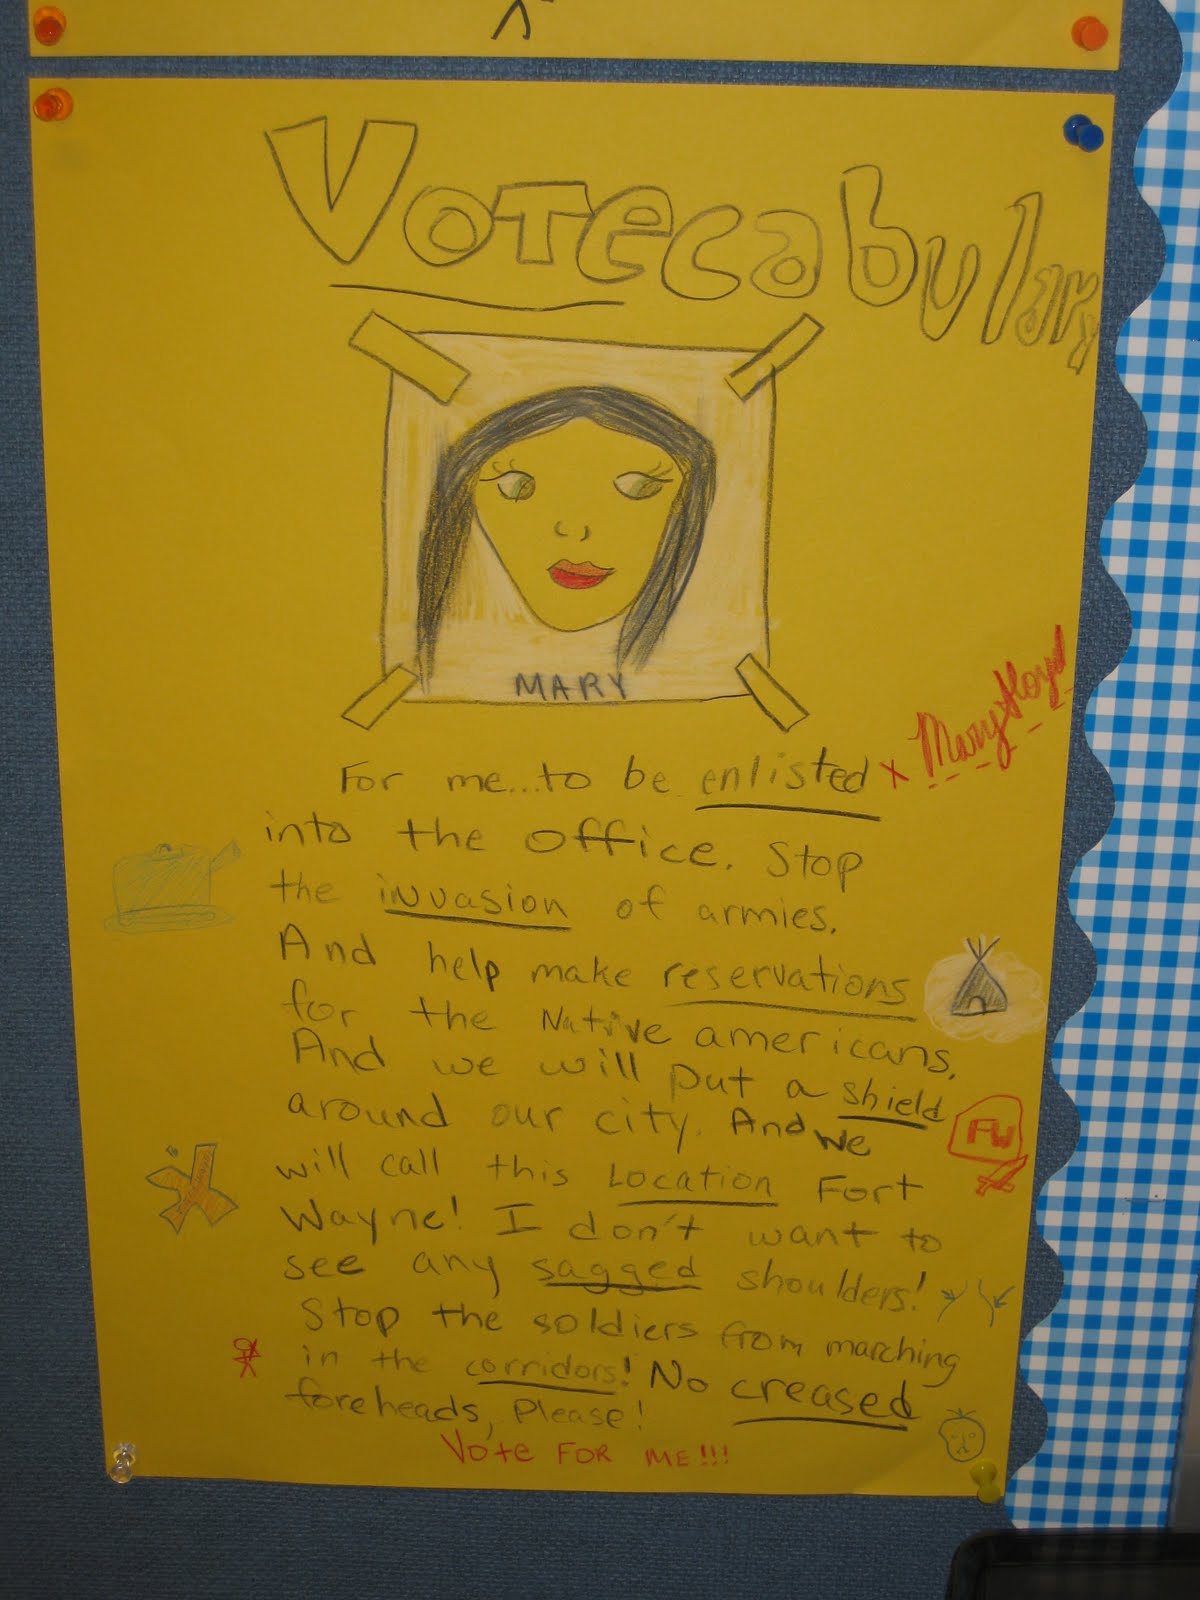 Votecabulary
MARY
Mary Floyd
For me...to be enlisted x
into the office. Stop
the invasion of armies.
And help make reservations
for the Native americans.
And we will put a shield
around our city. And we
FW
will call this Location Fort
Wayne! I don't want to
see any sagged shoulders!
Stop the soldiers from marching
in the corridors! No creased
foreheads, Please!
Vote FOR ME!!!